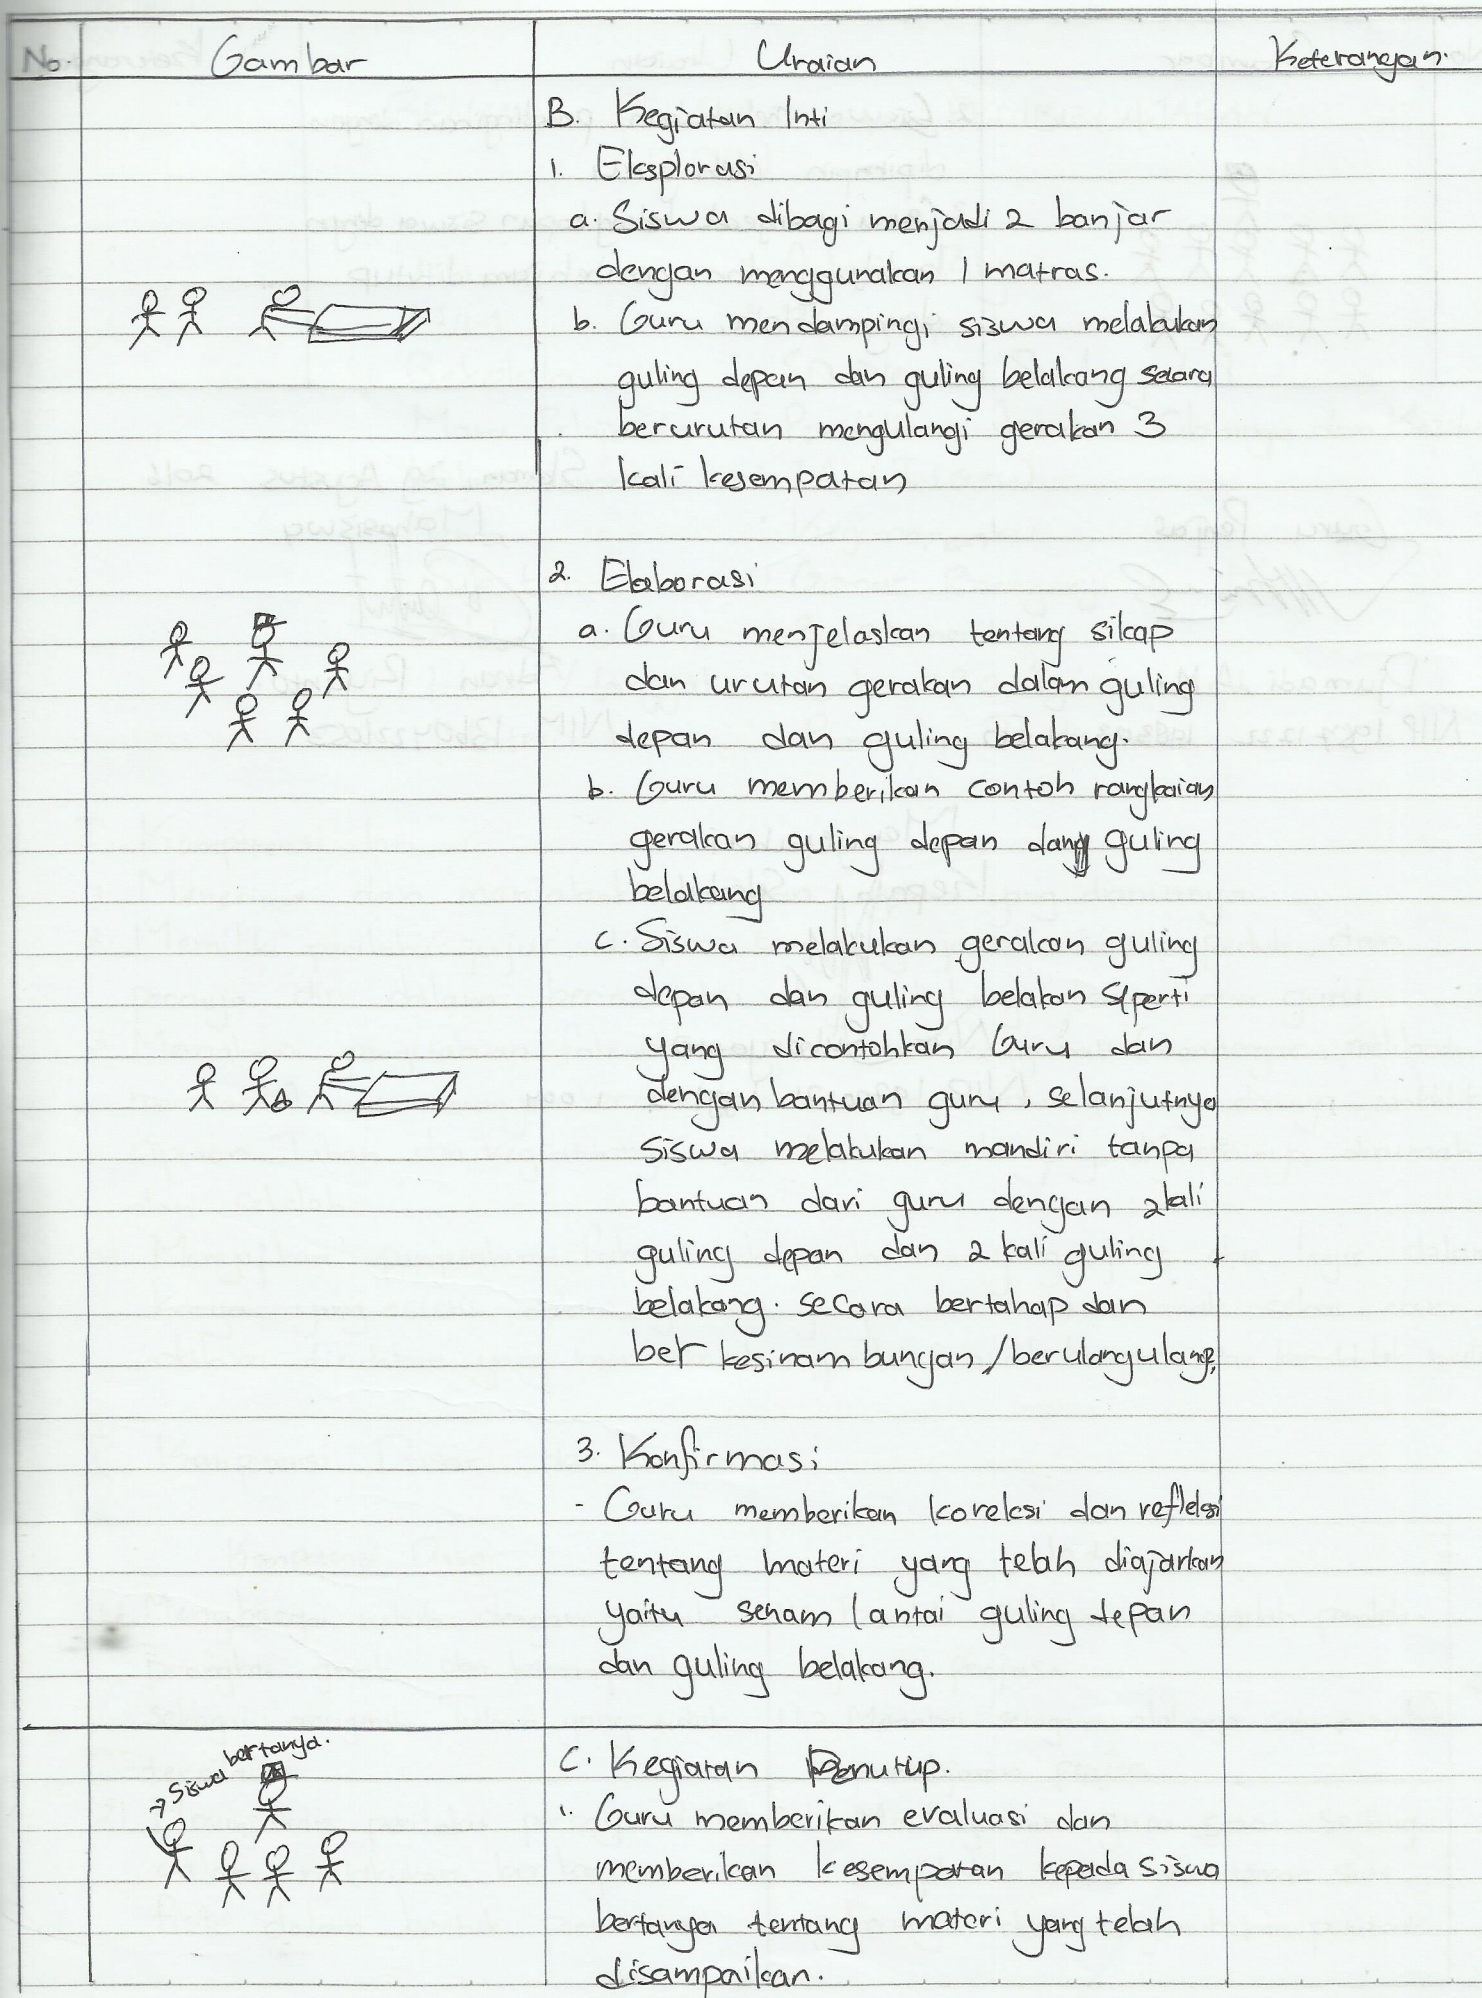 No. Gambar Uraian Keterangan.
B. Kegiatan Inti
1. Eksplorasi
a. Siswa dibagi menjadi 2 banjar
dengan menggunakan 1 matras.
b. Guru mendampingi siswa melakukan
guling depan dan guling belakang secara
berurutan mengulangi gerakan 3
kali kesempatan
2. Elaborasi
a. Guru menjelaskan tentang sikap
dan urutan gerakan dalam guling
depan dan guling belakang.
b. Guru memberikan contoh rangkaian
gerakan guling depan dan guling
belakang
c. Siswa melakukan gerakan guling
depan dan guling belakan seperti
yang dicontohkan Guru dan
dengan bantuan guru, selanjutnya
siswa melakukan mandiri tanpa
bantuan dari guru dengan 2kali
guling depan dan 2 kali guling
belakang. secara bertahap dan
ber kesinambungan /berulangulang.
3. Konfirmasi
- Guru memberikan koreksi dan refleksi
tentang materi yang telah diajarkan
yaitu senam lantai guling depan
dan guling belakang.
→ Siswa bertanya.
C. Kegiatan Penutup.
1. Guru memberikan evaluasi dan
memberikan kesempatan kepada siswa
bertanya tentang materi yang telah
disampaikan.